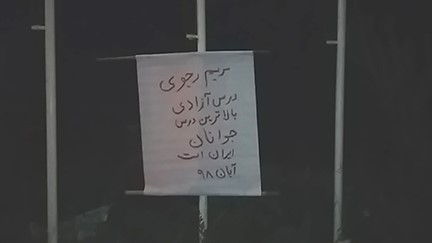 مریم رجوی
درس آزادی
بالاترین درس
جوانان
ایران است
آبان ۹۸